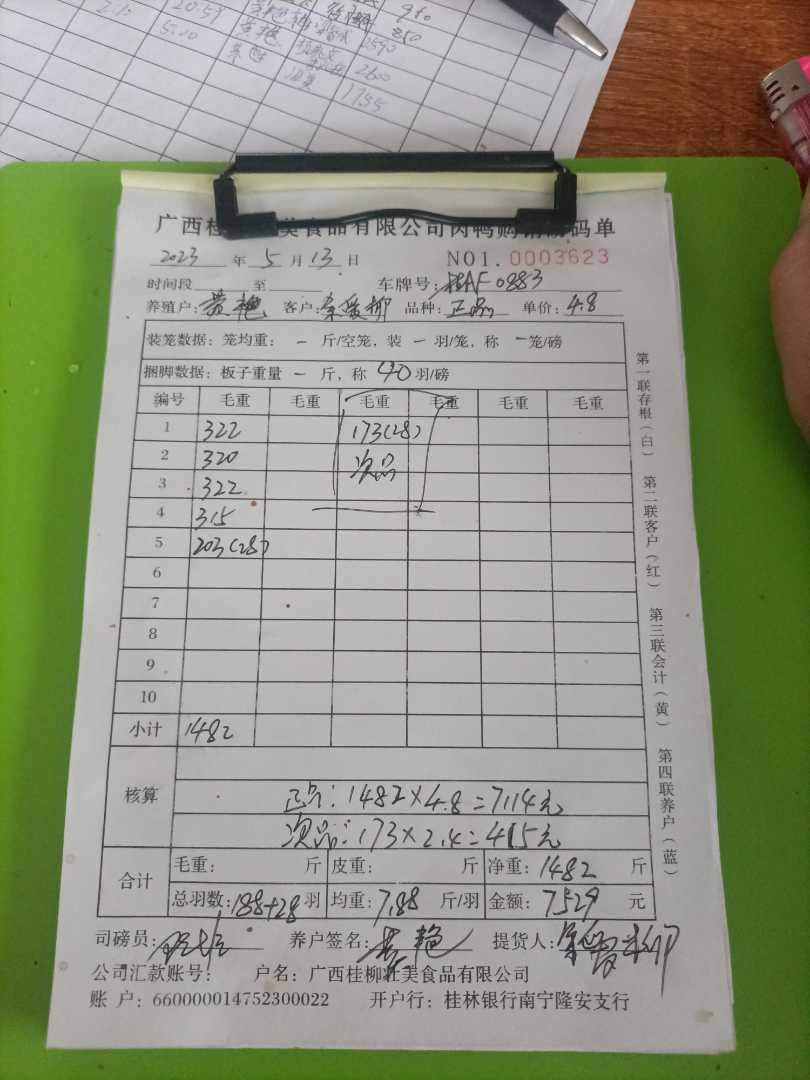 20.59
980
5.10
850
1590
2600
1755
广西桂 美食品有限公司肉鸭购销 码单
2023 年 5 月 13 日 NO1. 0003623
时间段 至 车牌号: 桂AF0883
养殖户: 黄艳 客户: 爱柳 品种: 正品 单价: 4.8
装笼数据: 笼均重: — 斤/空笼, 装 — 羽/笼, 称 — 笼/磅
捆脚数据: 板子重量 — 斤, 称 40 羽/磅
编号 毛重 毛重 毛重 毛重 毛重 毛重
1 322 173(28)
2 320 次品
3 322
4 315
5 203(28)
6
7
8
9
10
小计 1482
核算
正品: 1482×4.8=7114元
次品: 173×2.4=415元
合计
毛重: 斤 皮重: 斤 净重: 1482 斤
总羽数: 188+28 羽 均重: 7.88 斤/羽 金额: 7529 元
司磅员: 养户签名: 黄艳 提货人:
公司汇款账号: 户名: 广西桂柳壮美食品有限公司
账 户: 660000014752300022 开户行: 桂林银行南宁隆安支行
第一联存根(白)
第二联客户(红)
第三联会计(黄)
第四联养户(蓝)